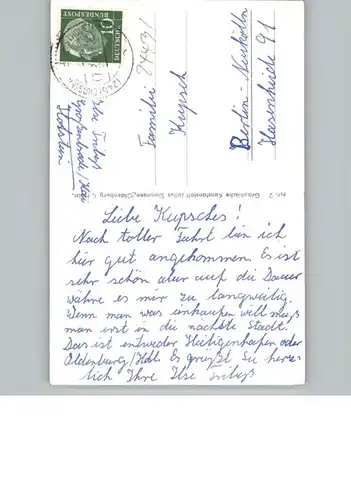 Liebe Kupsches!
Nach toller Fahrt bin ich
hier gut angekommen. Es ist
sehr schön aber auf die Dauer
wäre es mir zu langweilig.
Wenn man was einkaufen will muß
man erst in die nächste Stadt.
Das ist entweder Heiligenhafen oder
Oldenburg/Holst. Es grüßt Sie herz-
lich Ihre Ilse
Familie
Kupsch
Berlin-Neukölln
Hasenheide 91
Ilse
Großenbrode/
Holstein
DEUTSCHE
BUNDESPOST
10
Graphische Kunstanstalt Julius Simonsen, Oldenburg i. Holst.